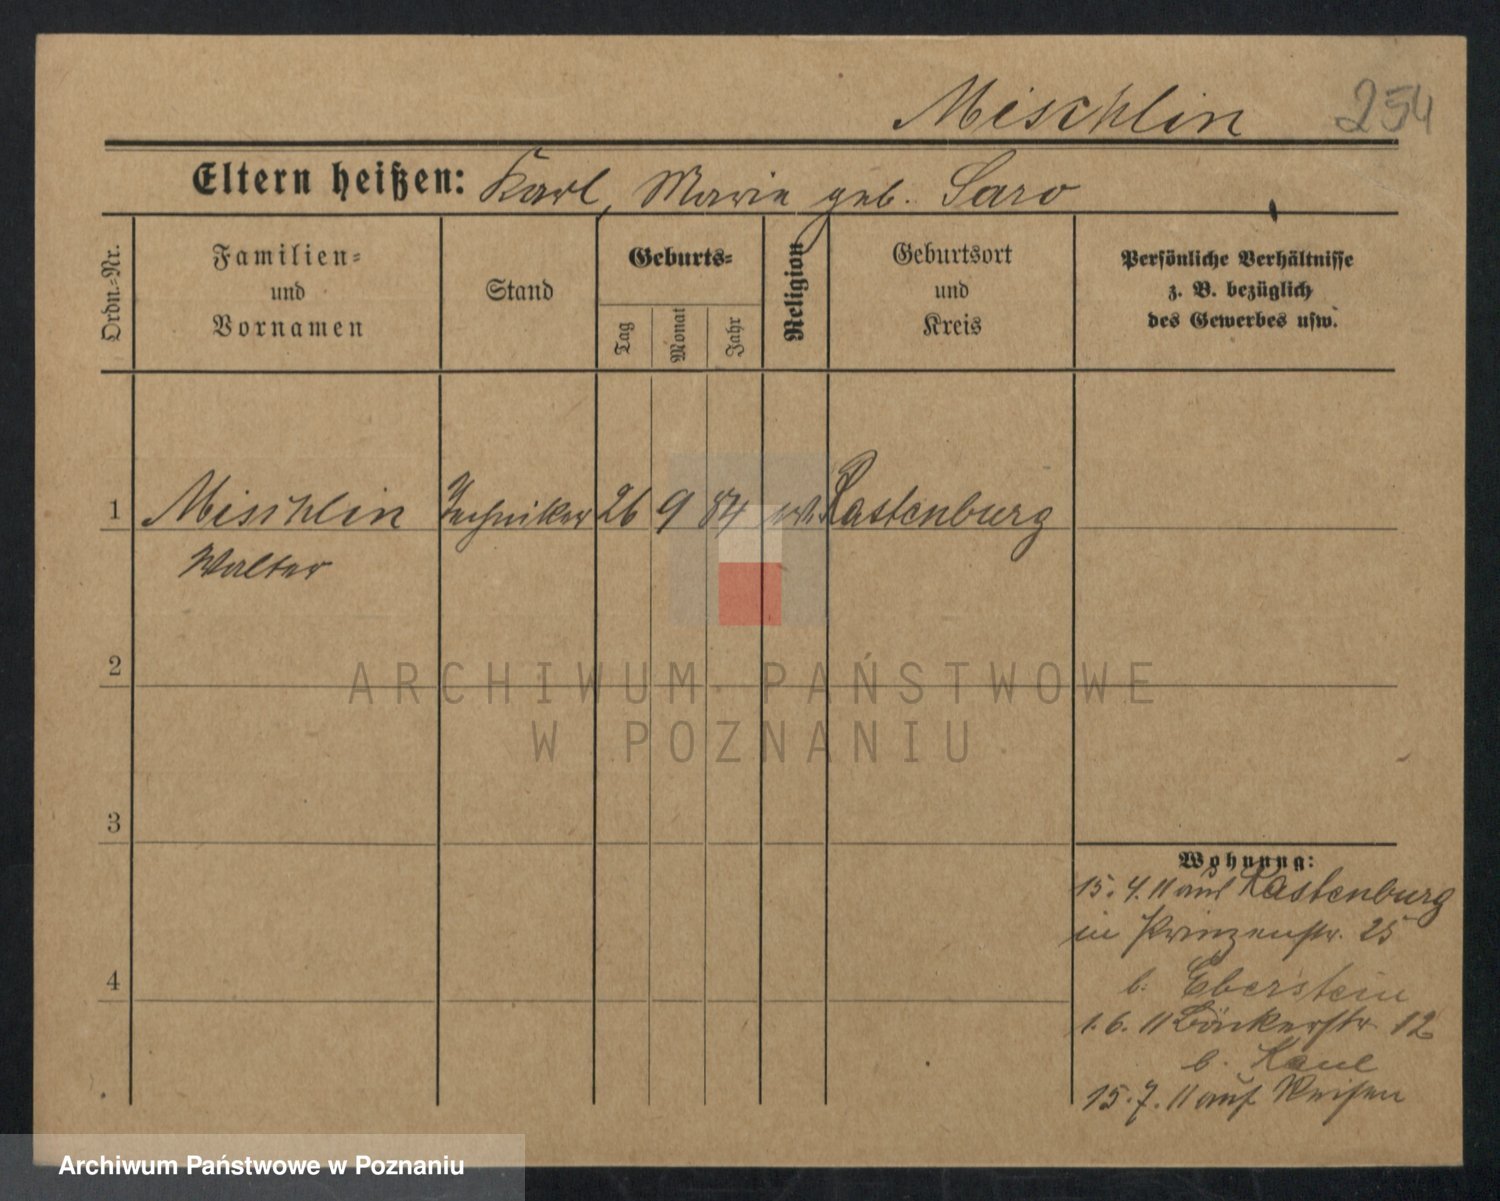 Mischlin 254
Eltern heißen: Karl, Marie geb. Saro
Ordn.-Nr.
Familien-
und
Vornamen
Stand
Geburts-
Tag
Monat
Jahr
Religion
Geburtsort
und
Kreis
Persönliche Verhältnisse
z. B. bezüglich
des Gewerbes usw.
1 Mischlin Techniker 26 9 84 ev. Rastenburg
Walter
2
3
4
Wohnung:
15. 4. 11 aus Rastenburg
in Prinzenstr. 25
b. Eberstein
1. 6. 11 Bäckerstr. 12
b. Kaul
15. 7. 11 auf Reisen
ARCHIWUM PAŃSTWOWE
W POZNANIU
Archiwum Państwowe w Poznaniu